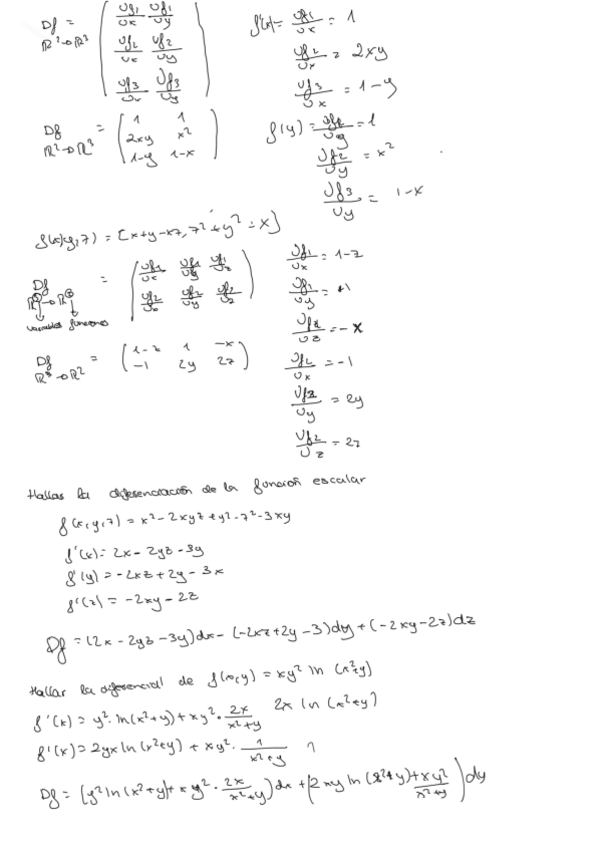 Df = R²→R³ ( Uf1/Ux Uf1/Uy
Uf2/Ux Uf2/Uy
Uf3/Ux Uf3/Uy )
f'(x) = Uf1/Ux = 1
Uf2/Ux = 2xy
Uf3/Ux = 1-y
Df R²→R³ = ( 1 1
2xy x²
1-y 1-x )
f(y) = Uf1/Uy = 1
Uf2/Uy = x²
Uf3/Uy = 1-x
f(x,y,z) = [x+y-xz, z²+y²-x]
Df = ( Uf1/Ux Uf1/Uy Uf1/Uz
Uf2/Ux Uf2/Uy Uf2/Uz )
variables funciones
Uf1/Ux = 1-z
Uf1/Uy = +1
Uf1/Uz = -x
Df R³→R² = ( 1-z 1 -x
-1 2y 2z )
Uf2/Ux = -1
Uf2/Uy = 2y
Uf2/Uz = 2z
Hallar la diferenciación de la función escalar
f(x,y,z) = x²-2xyz+y²-z²-3xy
f'(x) = 2x-2yz-3y
f'(y) = -2xz+2y-3x
f'(z) = -2xy-2z
Df = (2x-2yz-3y)dx-(-2xz+2y-3)dy+(-2xy-2z)dz
Hallar la diferencial de f(x,y) = xy² ln (x²+y)
f'(x) = y²·ln(x²+y)+xy²·2x/(x²+y) 2x ln(x²+y)
f'(x) = 2yx ln(x²+y) + xy²·1/(x²+y)
Df = (y² ln(x²+y)+xy²·2x/(x²+y))dx + (2xy ln(x²+y)+xy²/(x²+y))dy